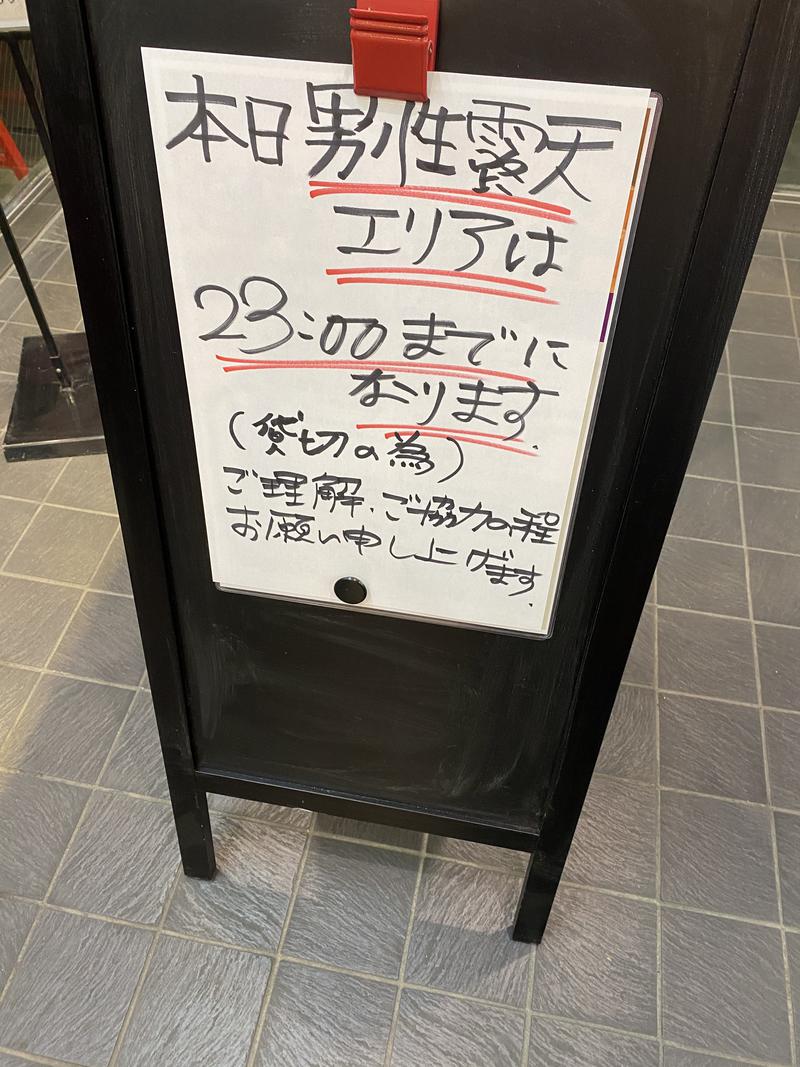 本日男性露天
エリアは
23:00までに
なります.
(貸切の為)
ご理解、ご協力の程
お願い申し上げます.